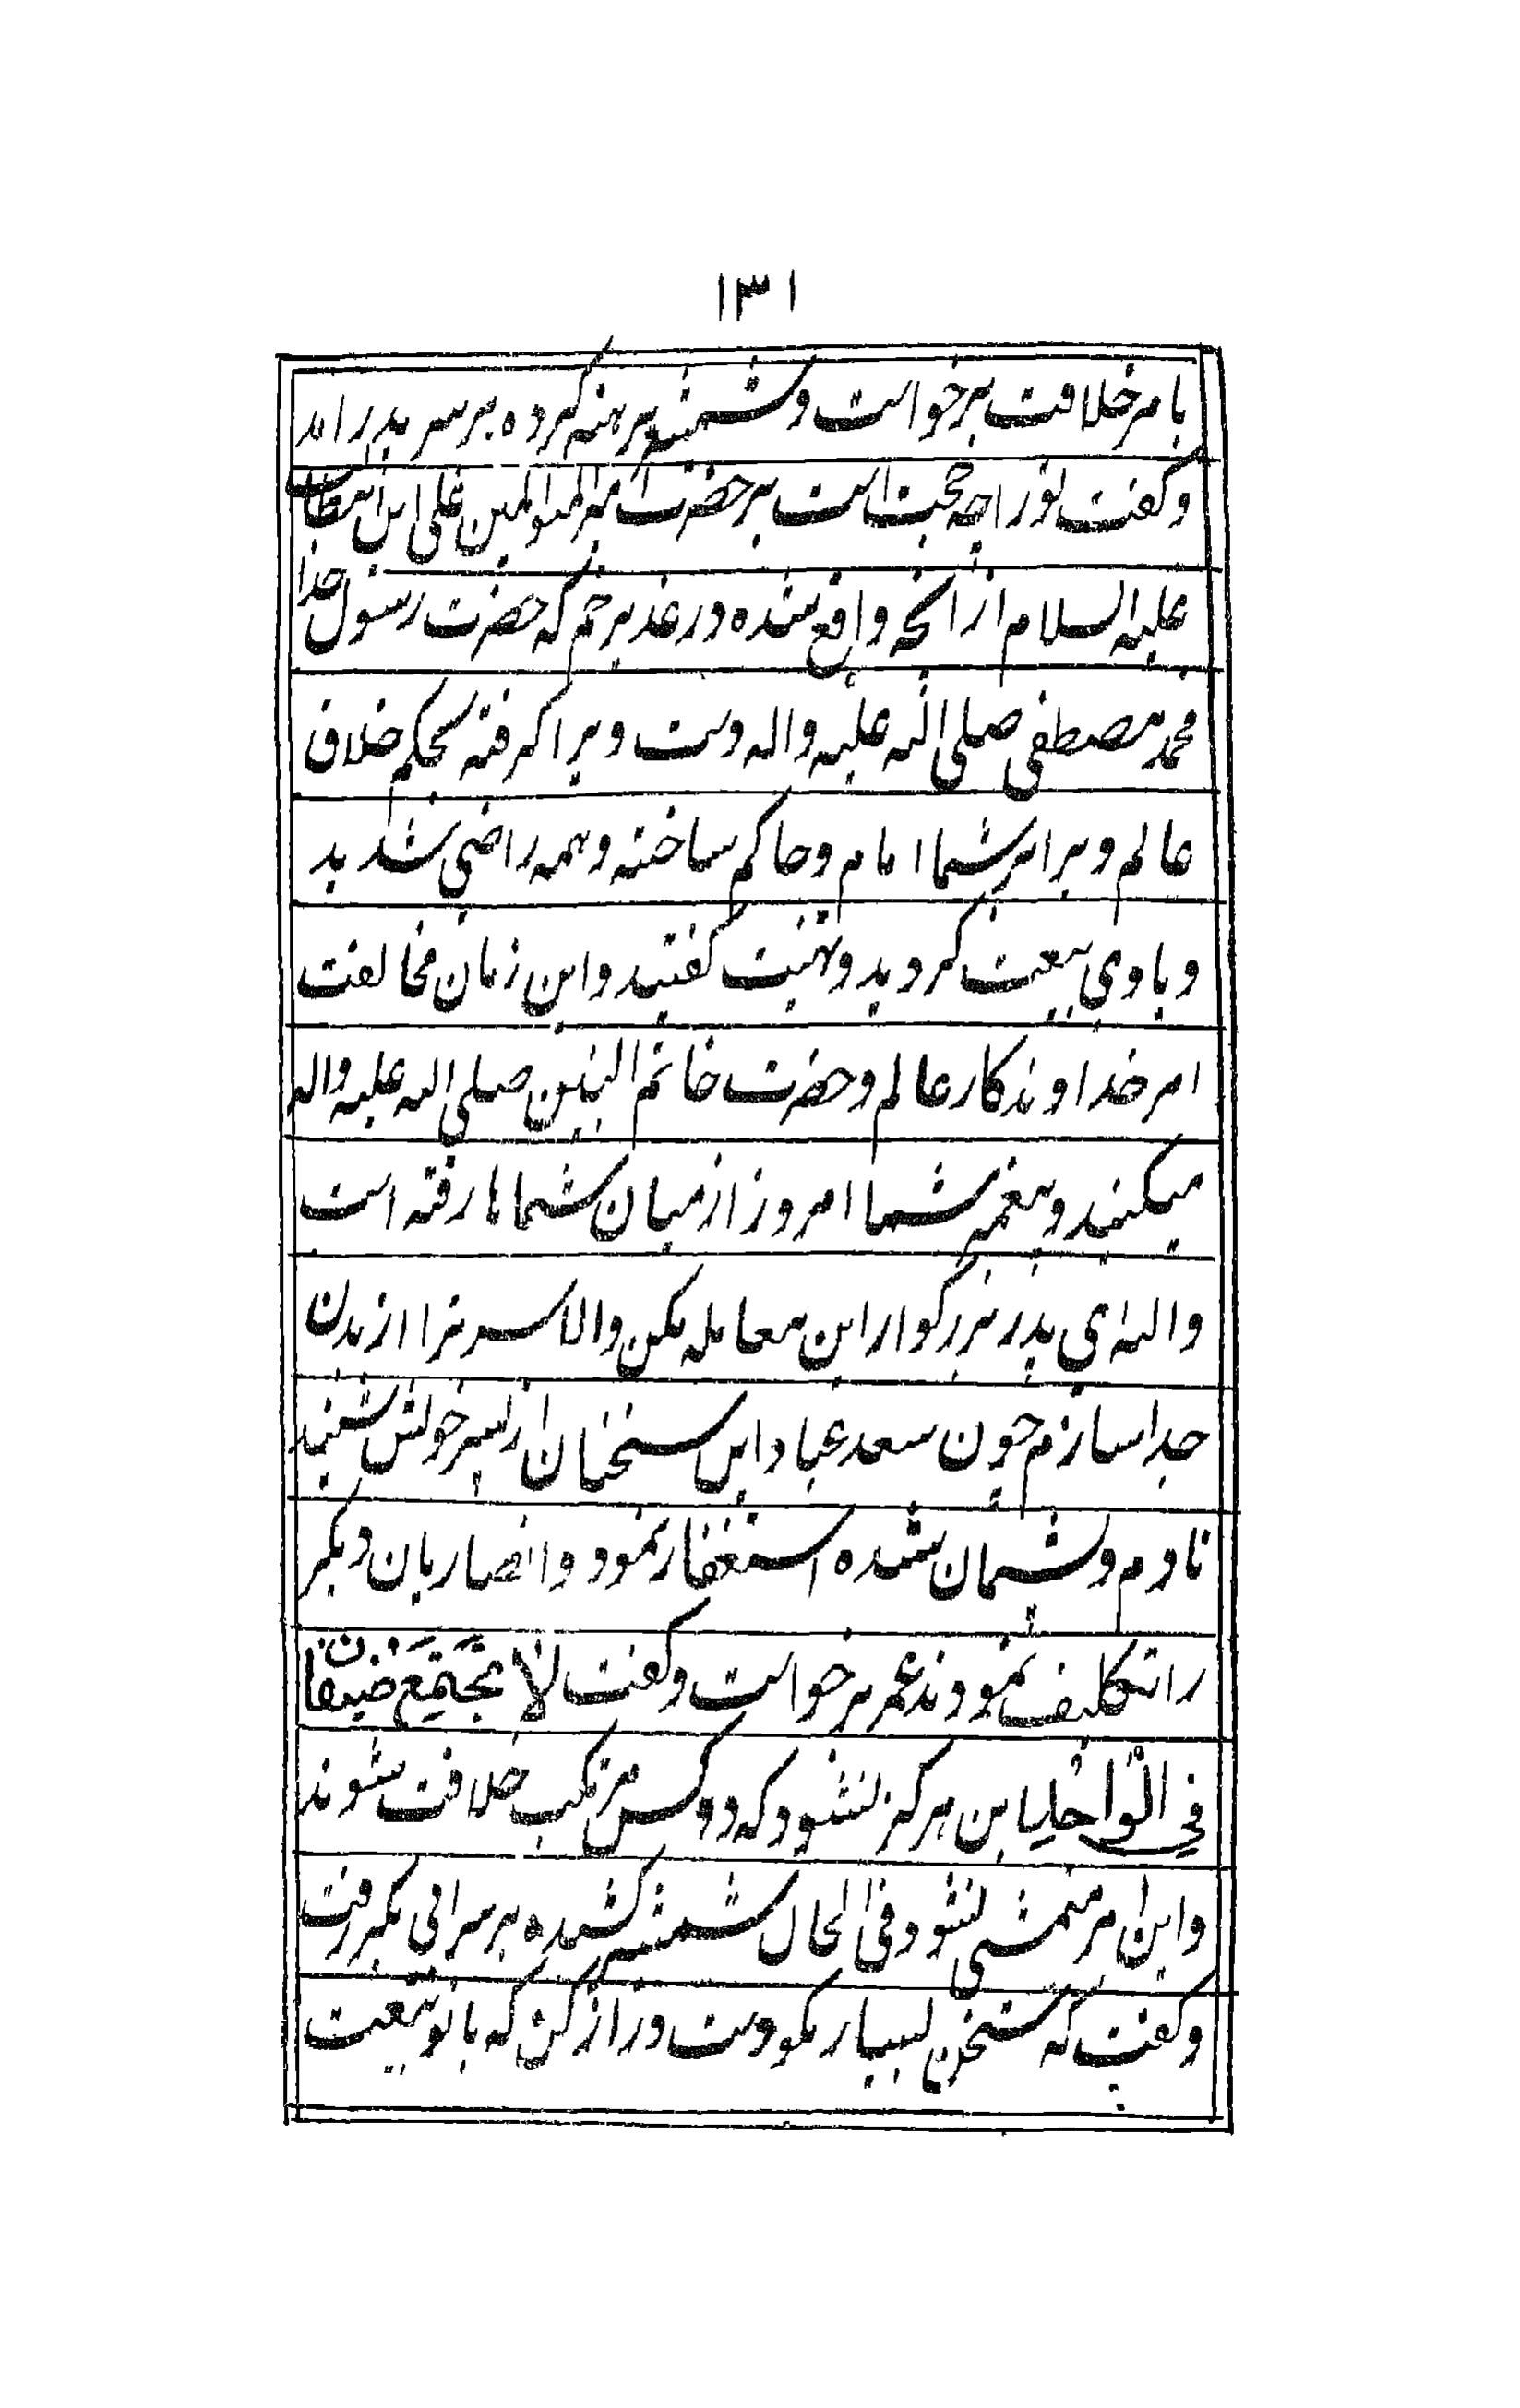 ١٣١
بامر خلافت برخواست وشمشیر برهنه کرده بر سر پدر امد
وکفت تورا چه حجت است بر حضرت امیرالمؤمنین علی ابن ابیطالب
علیه السلام از انچه واقع شده در غدیر خم که حضرت رسول خدا
محمد مصطفی صلی الله علیه واله دست ویرا کرفته بحکم خلاق
عالم ویرا بر شما امام وحاکم ساخته وهمه راضی شدید
وباوی بیعت کردید وتهنیت کفتید واین زمان مخالفت
امر خداوندکار عالم وحضرت خاتم النبیین صلی الله علیه واله
میکنید وپیغمبر شما امروز از میان شماها رفته است
والله ای پدر بزرکوار این معامله مکن والا سر ترا از بدن
جدا سازم چون سعد عباد این سخنان از پسر خویش شنید
نادم وپشیمان شده استغفار نمود وانصاریان دیکر
را تکلیف نمودند عمر برخواست وکفت لا یَجتَمِعُ ضیفان
فی الواحد این هرکز نشود که دو کس مرتکب خلافت شوند
واین امر متمشی نشود فی الحال شمشیر کشیده بر سر ابی بکر رفت
وکفت که سخن بسیار مکو دست دراز کن که باتو بیعت